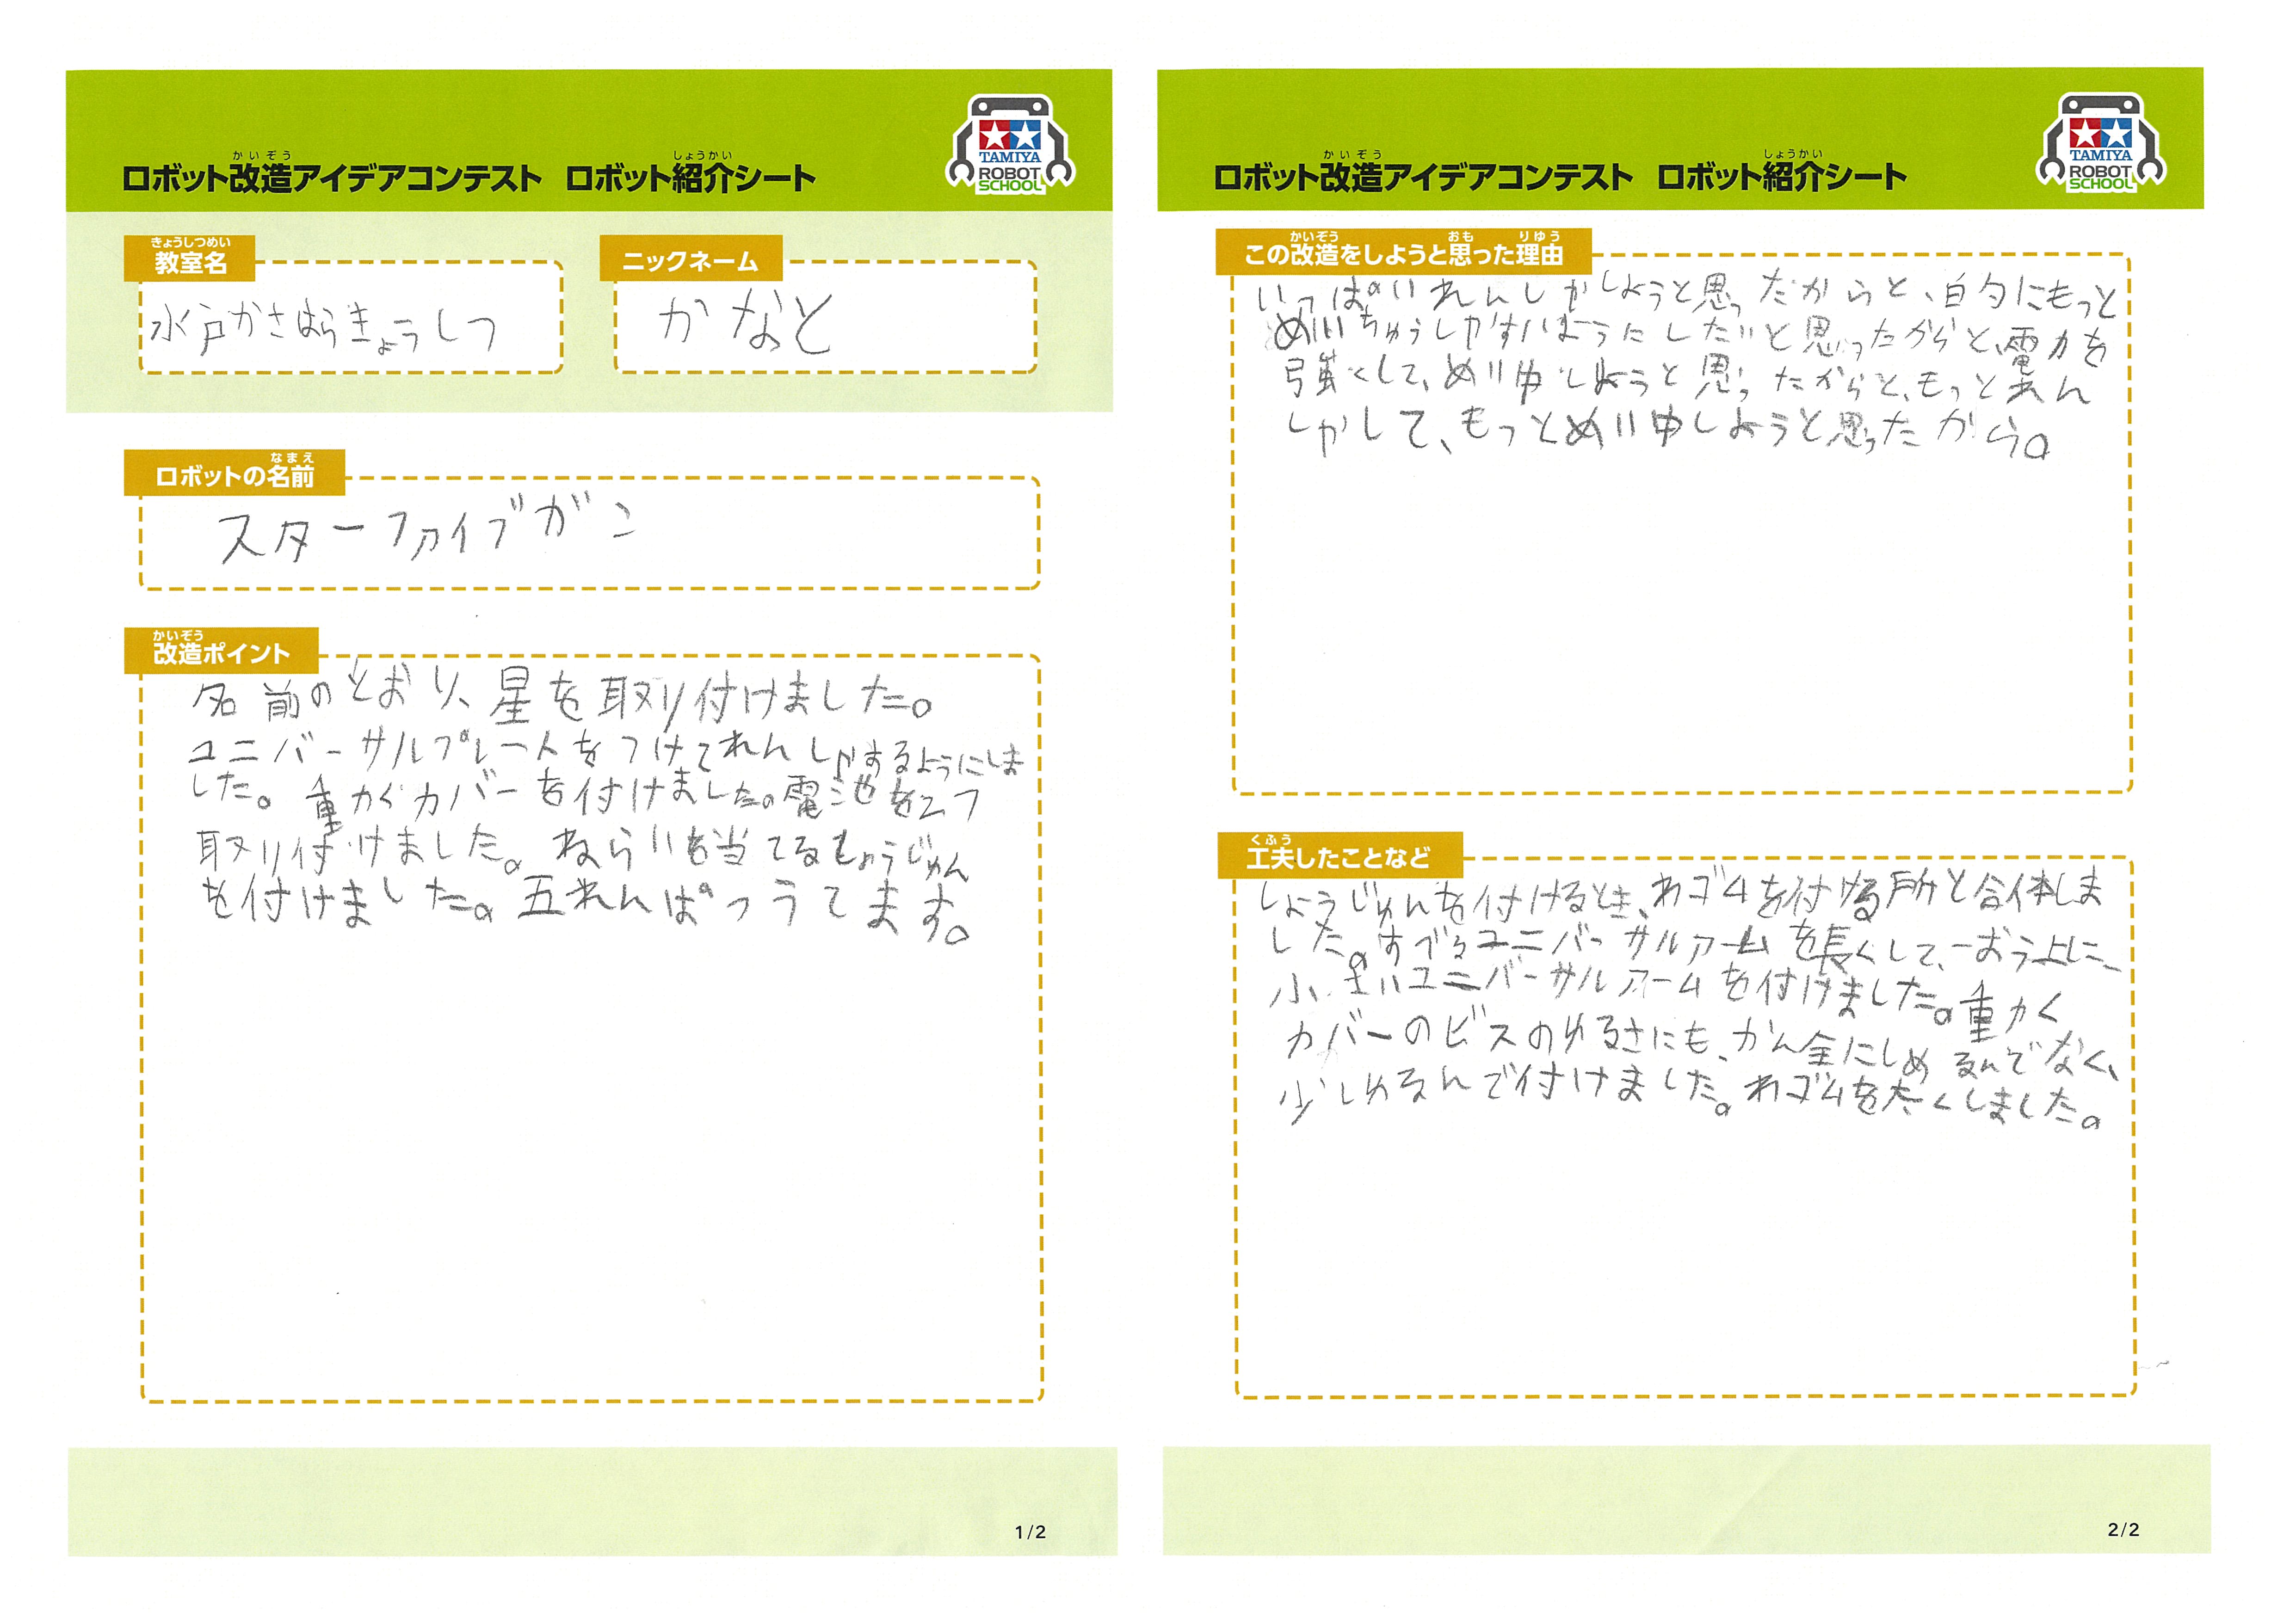 ロボット改造アイデアコンテスト ロボット紹介シート
かいぞう
しょうかい
TAMIYA
ROBOT
SCHOOL
きょうしつめい
教室名
水戸かさはらきょうしつ
ニックネーム
かなと
なまえ
ロボットの名前
スターファイブガン
かいぞう
改造ポイント
名前のとおり、星を取り付けました。
ユニバーサルプレートをつけてれんしゃするようにしま
した。重かくカバーを付けました。電池を2つ
取り付けました。ねらいを当てるしょうじゅん
を付けました。五れんぱつうてます。
1/2
ロボット改造アイデアコンテスト ロボット紹介シート
かいぞう
しょうかい
TAMIYA
ROBOT
SCHOOL
かいぞう おも りゆう
この改造をしようと思った理由
いっぱいれんしゃしようと思ったからと、自分にもっと
めいちゅうしやすいようにしたいと思ったからと、電力を
強くして、めい中しようと思ったからと、もっとれん
しゃして、もっとめい中しようと思ったから。
くふう
工夫したことなど
しょうじゅんを付けるとき、わゴムを付ける所と合体しま
した。すべるユニバーサルアームを長くして、一おう上に、
小さいユニバーサルアームを付けました。重かく
カバーのビスのゆるさにも、かん全にしめるんでなく、
少しゆるんで付けました。わゴムを太くしました。
2/2